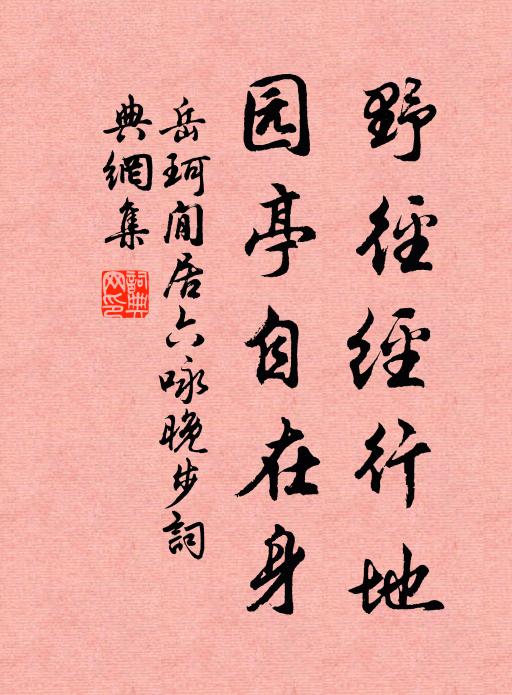 野徑經行地
园亭自在身
岳珂閒居六咏晚步詞
典網集
詞典
网印